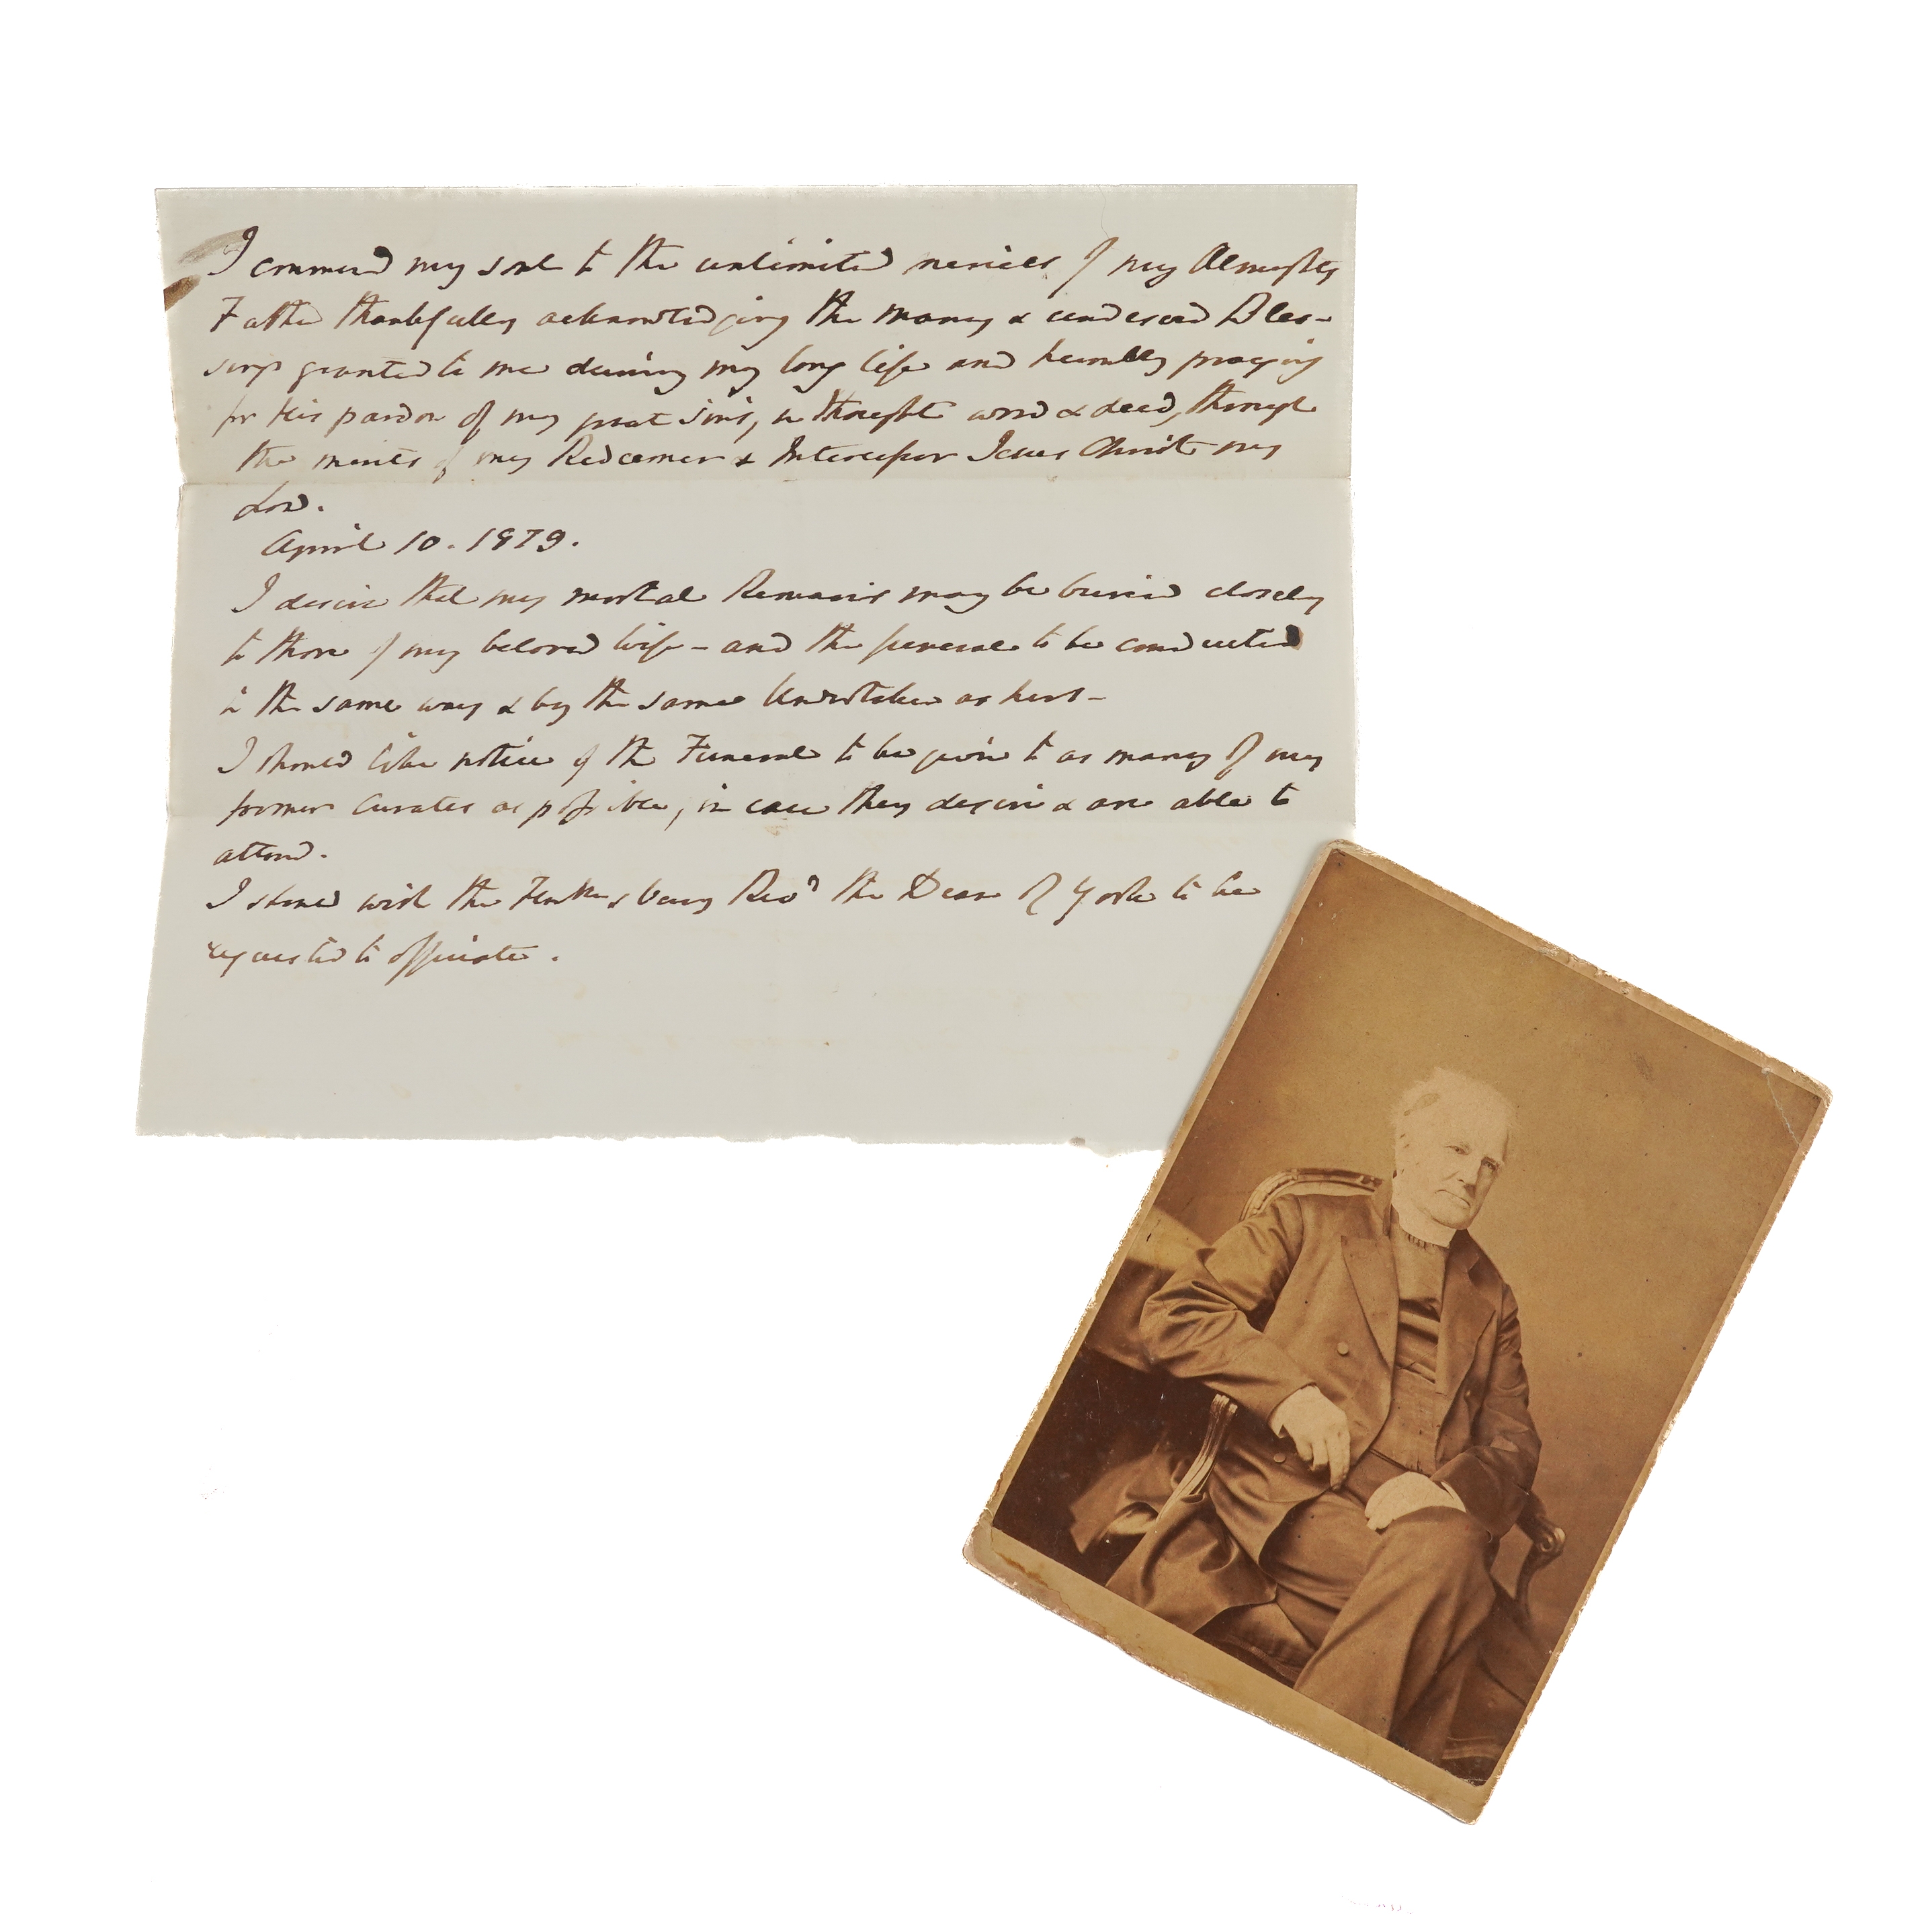 I commend my soul to the unlimited mercies of my Almighty
Father thankfully acknowledging the many & undeserved Bles-
sings granted to me during my long life and humbly praying
for His pardon of my great sins, in thought word & deed, through
the merits of my Redeemer & Intercessor Jesus Christ my
Lord.
April 10. 1879.
I desire that my mortal Remains may be buried closely
to those of my beloved wife - and the funeral to be conducted
in the same way & by the same Undertaker as hers -
I should like notice of the Funeral to be given to as many of my
former Curates as possible, in case they desire & are able to
attend.
I should wish the Revd the Dean of York to be
requested to officiate.